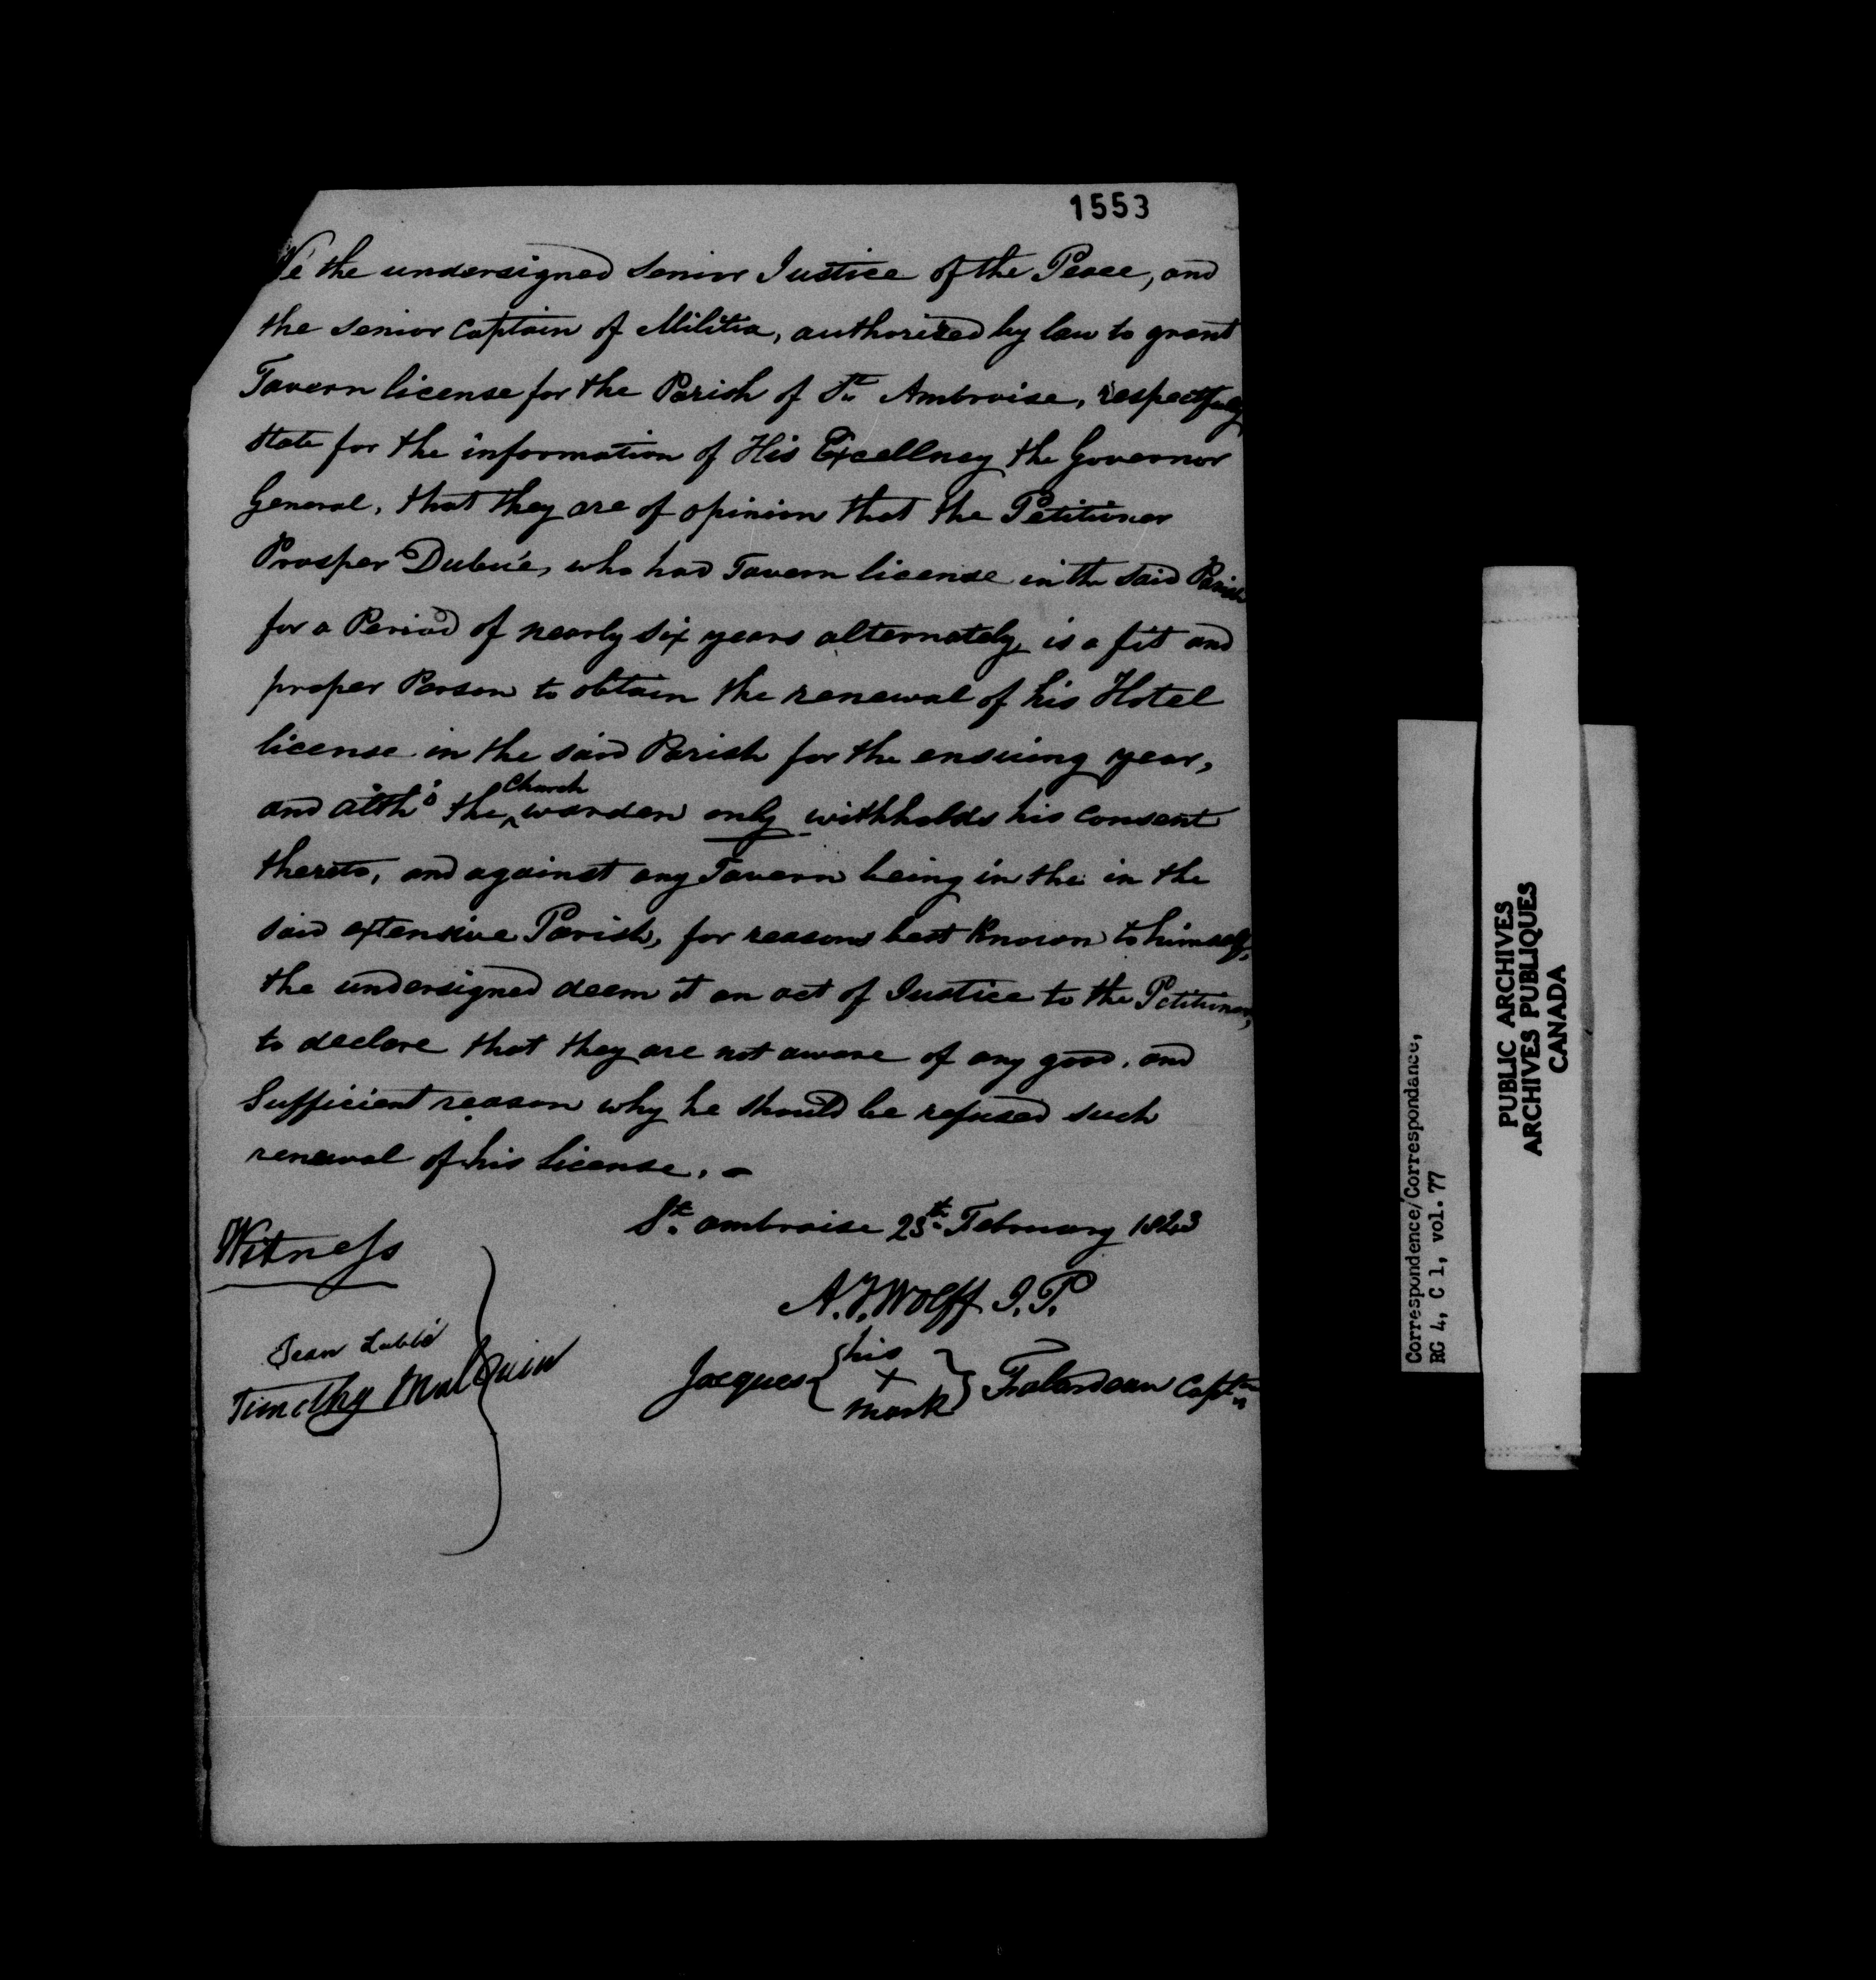 1553
We the undersigned Senior Justice of the Peace, and
the senior Captain of Militia, authorized by law to grant
Tavern license for the Parish of St. Ambroise, respectfully
state for the information of His Excellncy the Governor
General, that they are of opinion that the Petitioner
Prosper Dubué, who had Tavern license in the said Parish
for a Period of nearly six years alternately, is a fit and
proper Person to obtain the renewal of his Hotel
license in the said Parish for the ensuing year,
and altho' the Church warden only withholds his consent
thereto, and against any Tavern being in the in the
said extensive Parish, for reasons best known to himself,
the undersigned deem it an act of Justice to the Petitioner,
to declare that they are not aware of any good, and
Sufficient reason why he should be refused such
renewal of his license. -
St. Ambroise 25th February 1843
Witness
A. J. Wolff J. P.
Jean
Jacques his x mark Falardeau Captn
Timothy
Correspondence/Correspondance,
RG 4, C 1, vol. 77
PUBLIC ARCHIVES
ARCHIVES PUBLIQUES
CANADA